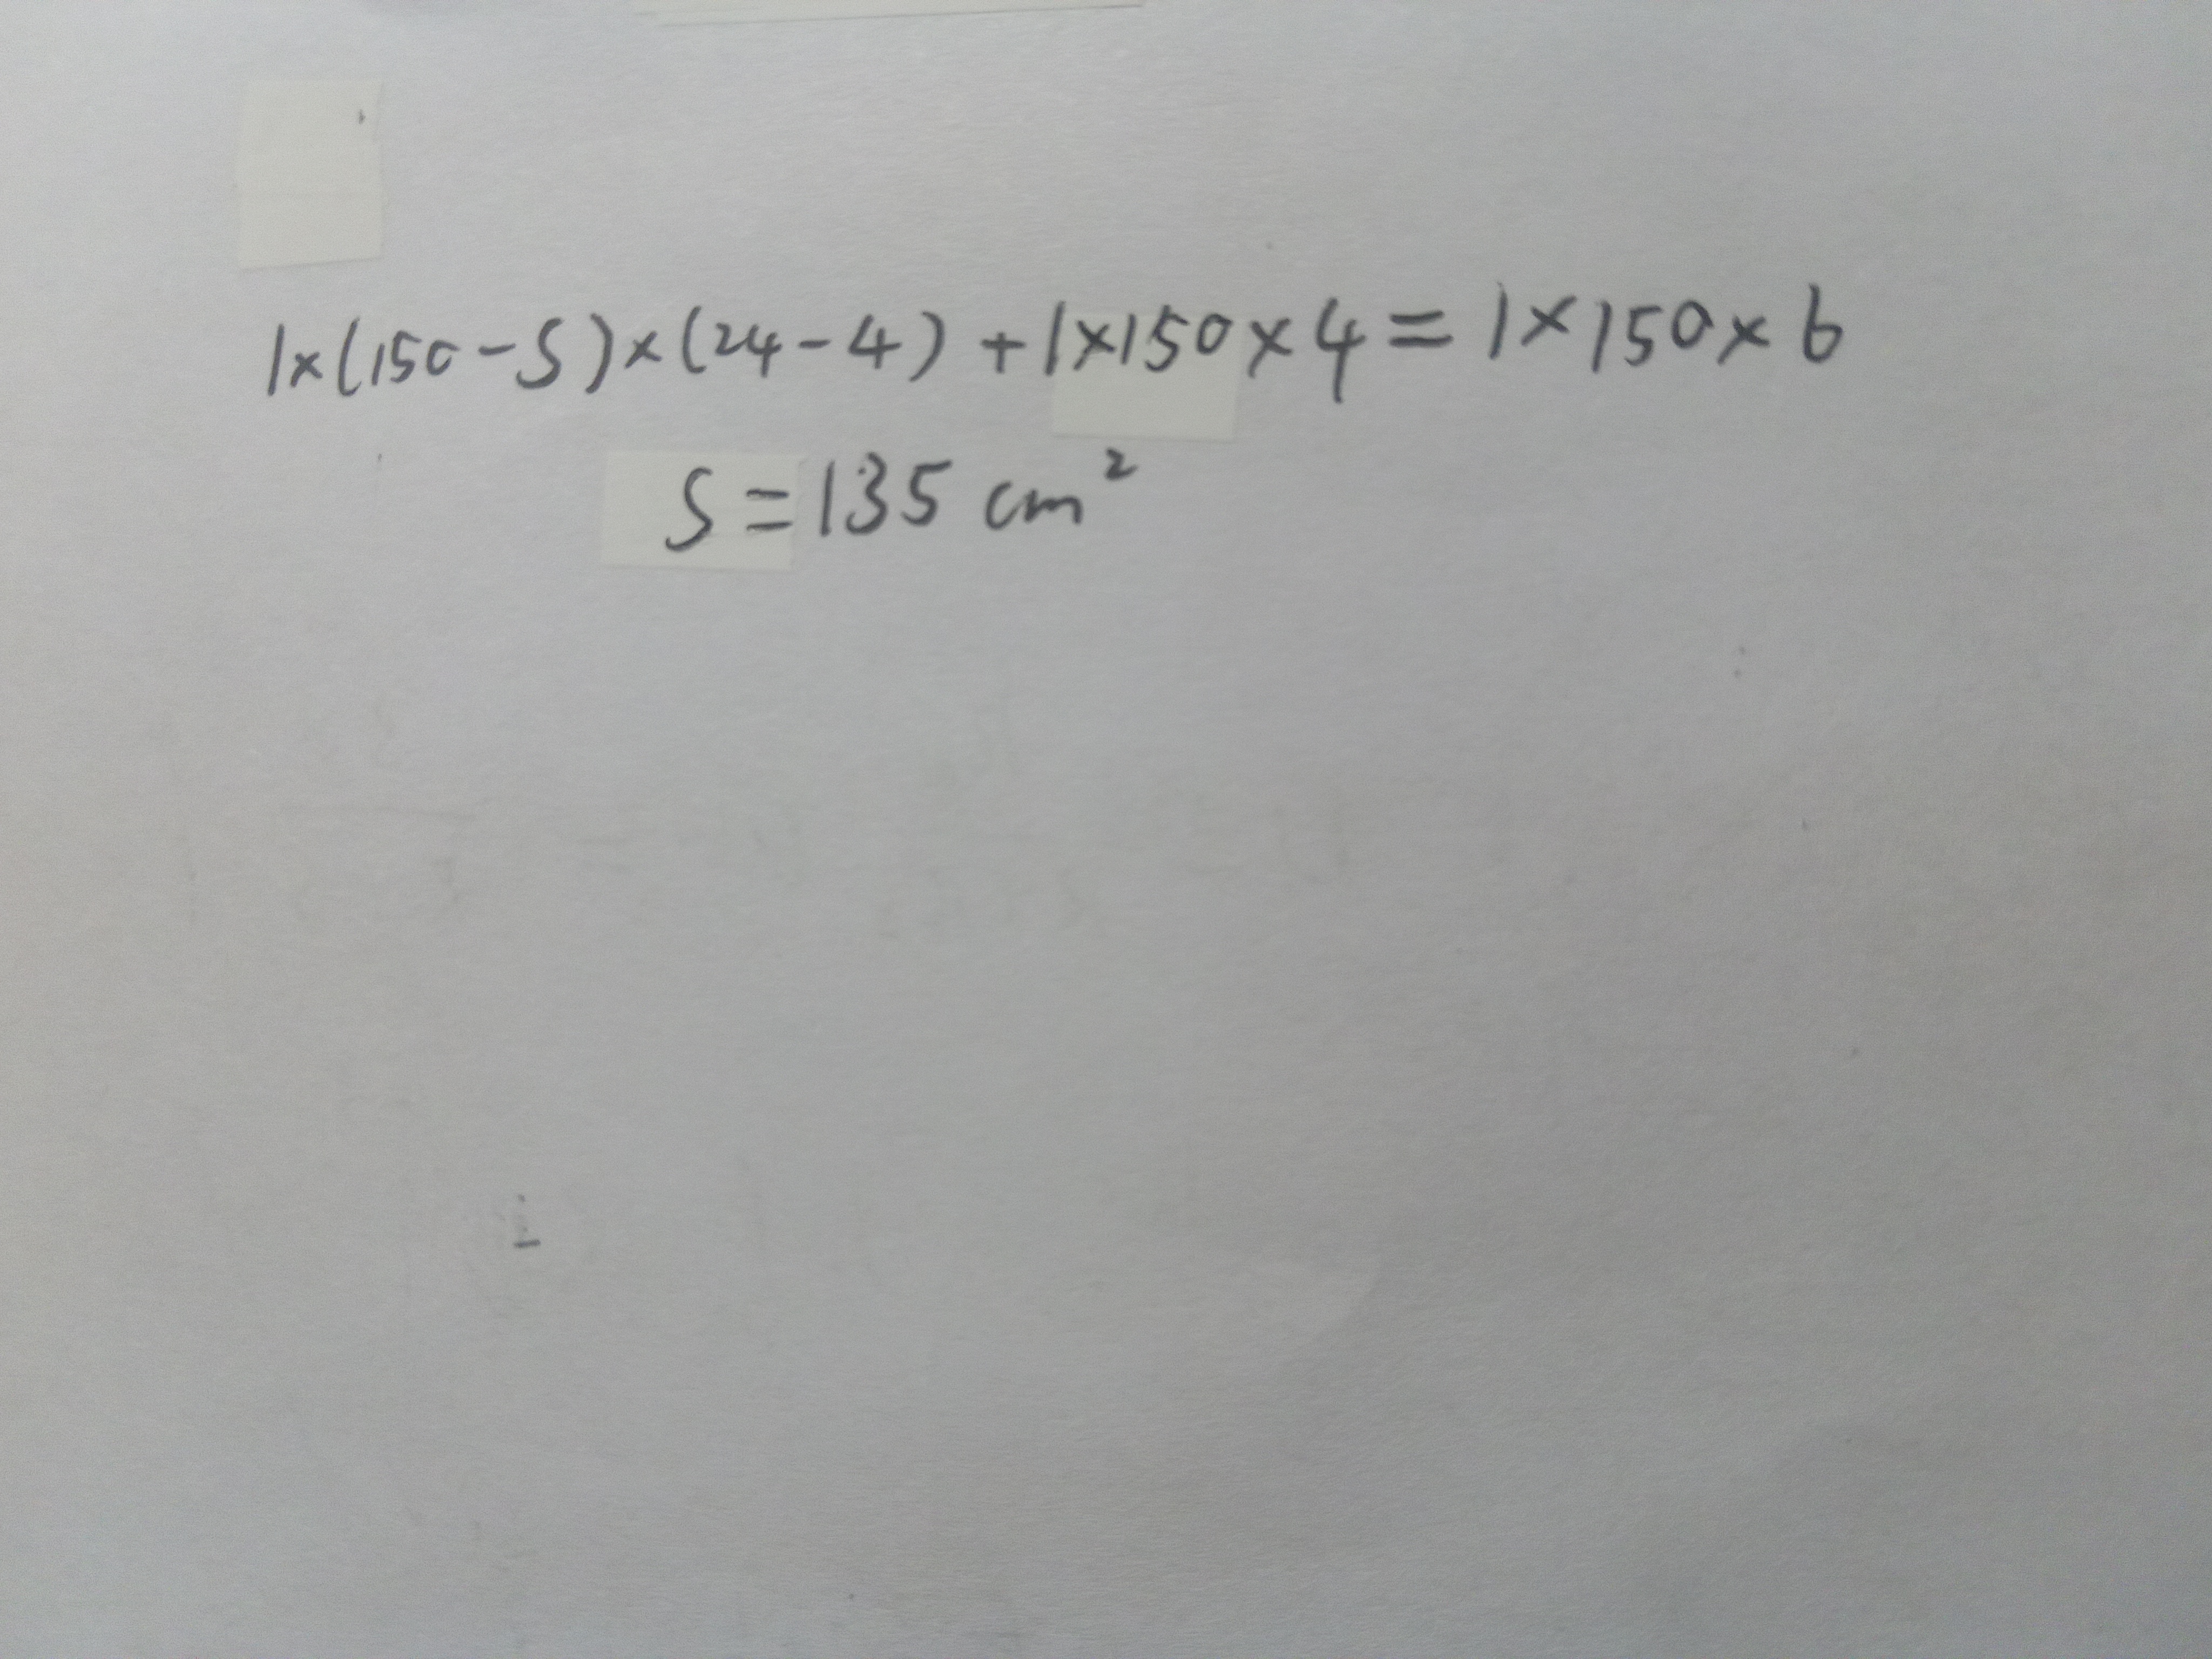 1×(150-S)×(24-4)+1×150×4=1×150×6
S=135 cm²